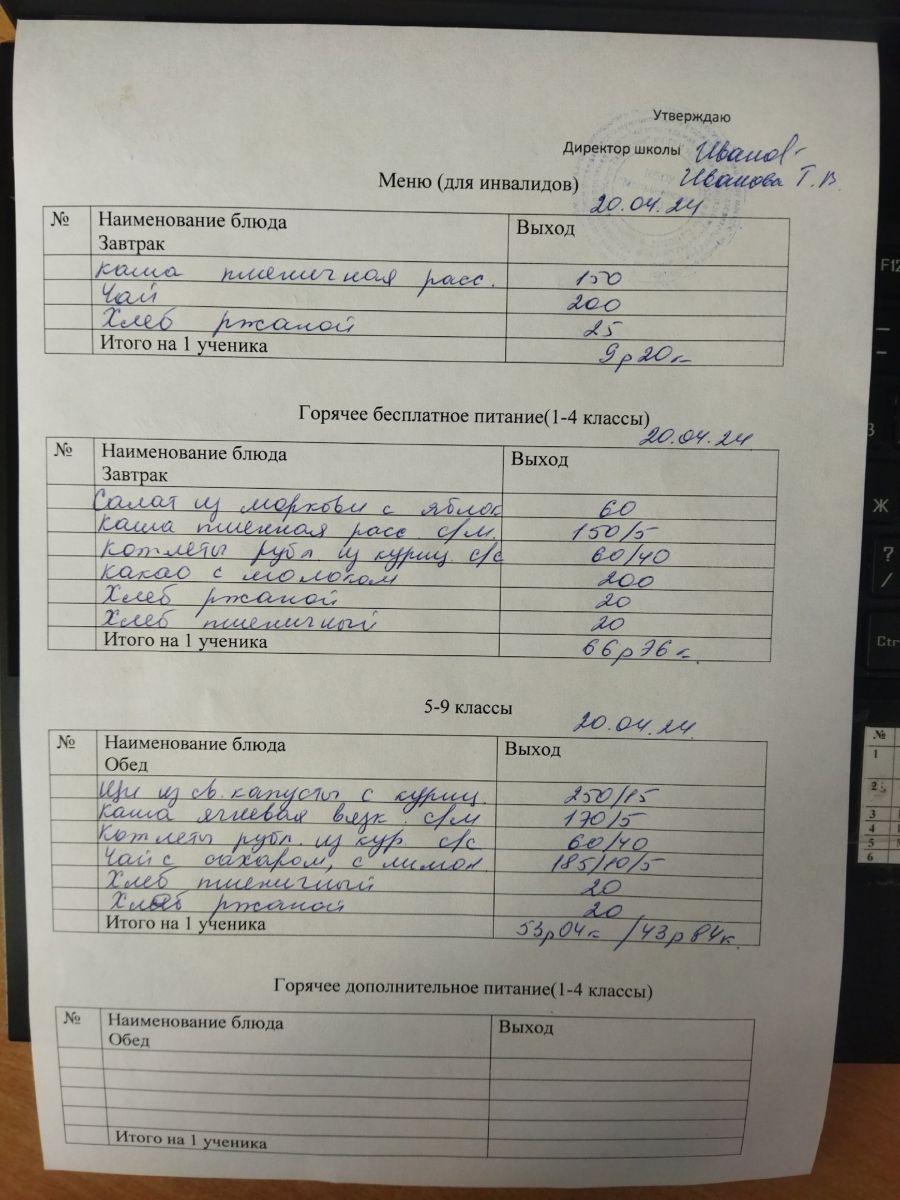 Утверждаю
Директор школы Иванов-
Иванова Т.В.
Меню (для инвалидов)
20.04.24
№ Наименование блюда Выход
Завтрак
каша пшеничная расс. 150
Чай 200
Хлеб ржаной 25
Итого на 1 ученика 9р20к
Горячее бесплатное питание(1-4 классы)
20.04.24
№ Наименование блюда Выход
Завтрак
Салат из моркови с яблок 60
каша пшенная расс с/м. 150/5
котлеты рубл из куриц с/с 60/40
какао с молоком 200
Хлеб ржаной 20
Хлеб пшеничный 20
Итого на 1 ученика 66р76к.
5-9 классы
20.04.24.
№ Наименование блюда Выход
Обед
Щи из св. капусты с куриц. 250/15
каша ячневая вязк. с/м 170/5
Котлеты рубл. из кур с/с 60/40
Чай с сахаром, с лимон. 185/10/5
Хлеб пшеничный 20
Хлеб ржаной 20
Итого на 1 ученика 53р04к /43р84к.
Горячее дополнительное питание(1-4 классы)
№ Наименование блюда Выход
Обед
Итого на 1 ученика
F12
Ж
?
/
Ctr
№
1
2
3
4
5
6